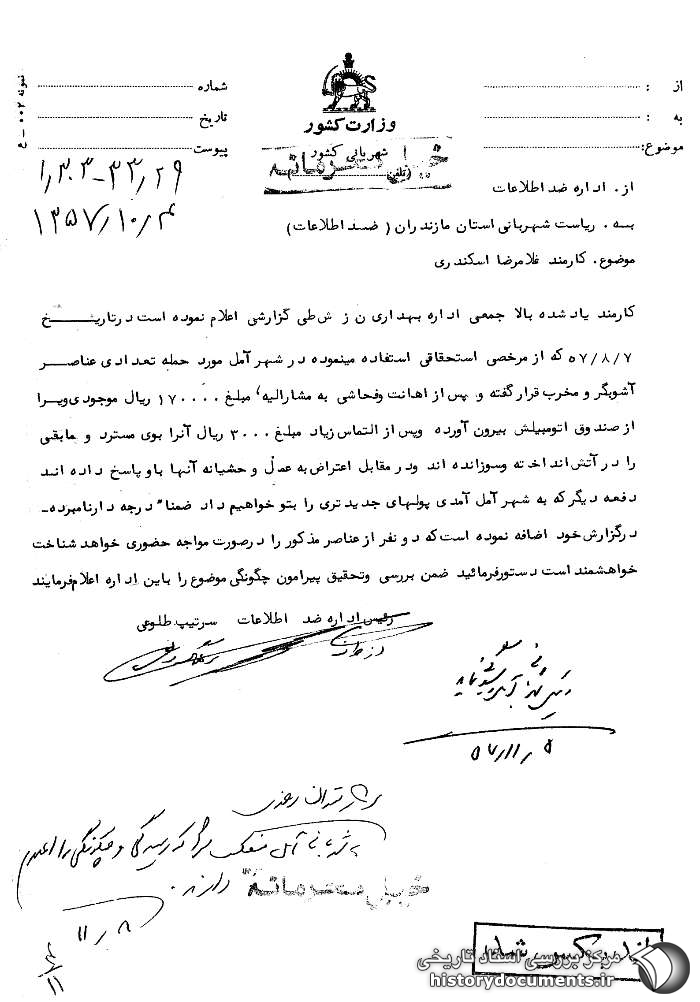 از :
به :
موضوع:
وزارت کشور
شهربانی کشور
خیلی محرمانه
شماره
تاریخ
پیوست
نمونه ۰۰۲ - ع
۱٫۳۰۳-۳۳٫۲۹
۱۳۵۷٫۱۰٫۳
از. اداره ضد اطلاعات
به. ریاست شهربانی استان مازندران ( ضد اطلاعات)
موضوع. کارمند غلامرضا اسکندری
کارمند یاد شده بالا جمعی اداره بهداری ن ز ش طی گزارشی اعلام نموده است در تاریخ
۵۷/۸/۷ که از مرخصی استحقاقی استفاده مینموده در شهر آمل مورد حمله تعدادی عناصر
آشوبگر و مخرب قرار گفته و پس از اهانت وفحاشی به مشارالیه، مبلغ ۱۷۰۰۰۰ ریال موجودی ویرا
از صندوق اتومبیلش بیرون آورده وپس از التماس زیاد مبلغ ۳۰۰۰ ریال آنرا بوی مسترد و مابقی
را در آتش انداخته وسوزانده اند ودر مقابل اعتراض به عمل وحشیانه آنها باو پاسخ داده اند
دفعه دیگر که به شهر آمل آمدی پولهای جدید تری را بتو خواهیم داد ضمنا" درجه دار نامبرده-
در گزارش خود اضافه نموده است که دو نفر از عناصر مذکور را در صورت مواجه حضوری خواهد شناخت
خواهشمند است دستور فرمائید ضمن بررسی وتحقیق پیرامون چگونگی موضوع را باین اداره اعلام فرمایند
رئیس اداره ضد اطلاعات سرتیپ طلوعی
۵۷٫۱۱٫۵
بشهربانی آمل منعکس رسیدگی و چگونگی را اعلام
دارند.
خیلی محرمانه
۸٫۱۱
مرکز بررسی اسناد تاریخی
historydocuments.ir